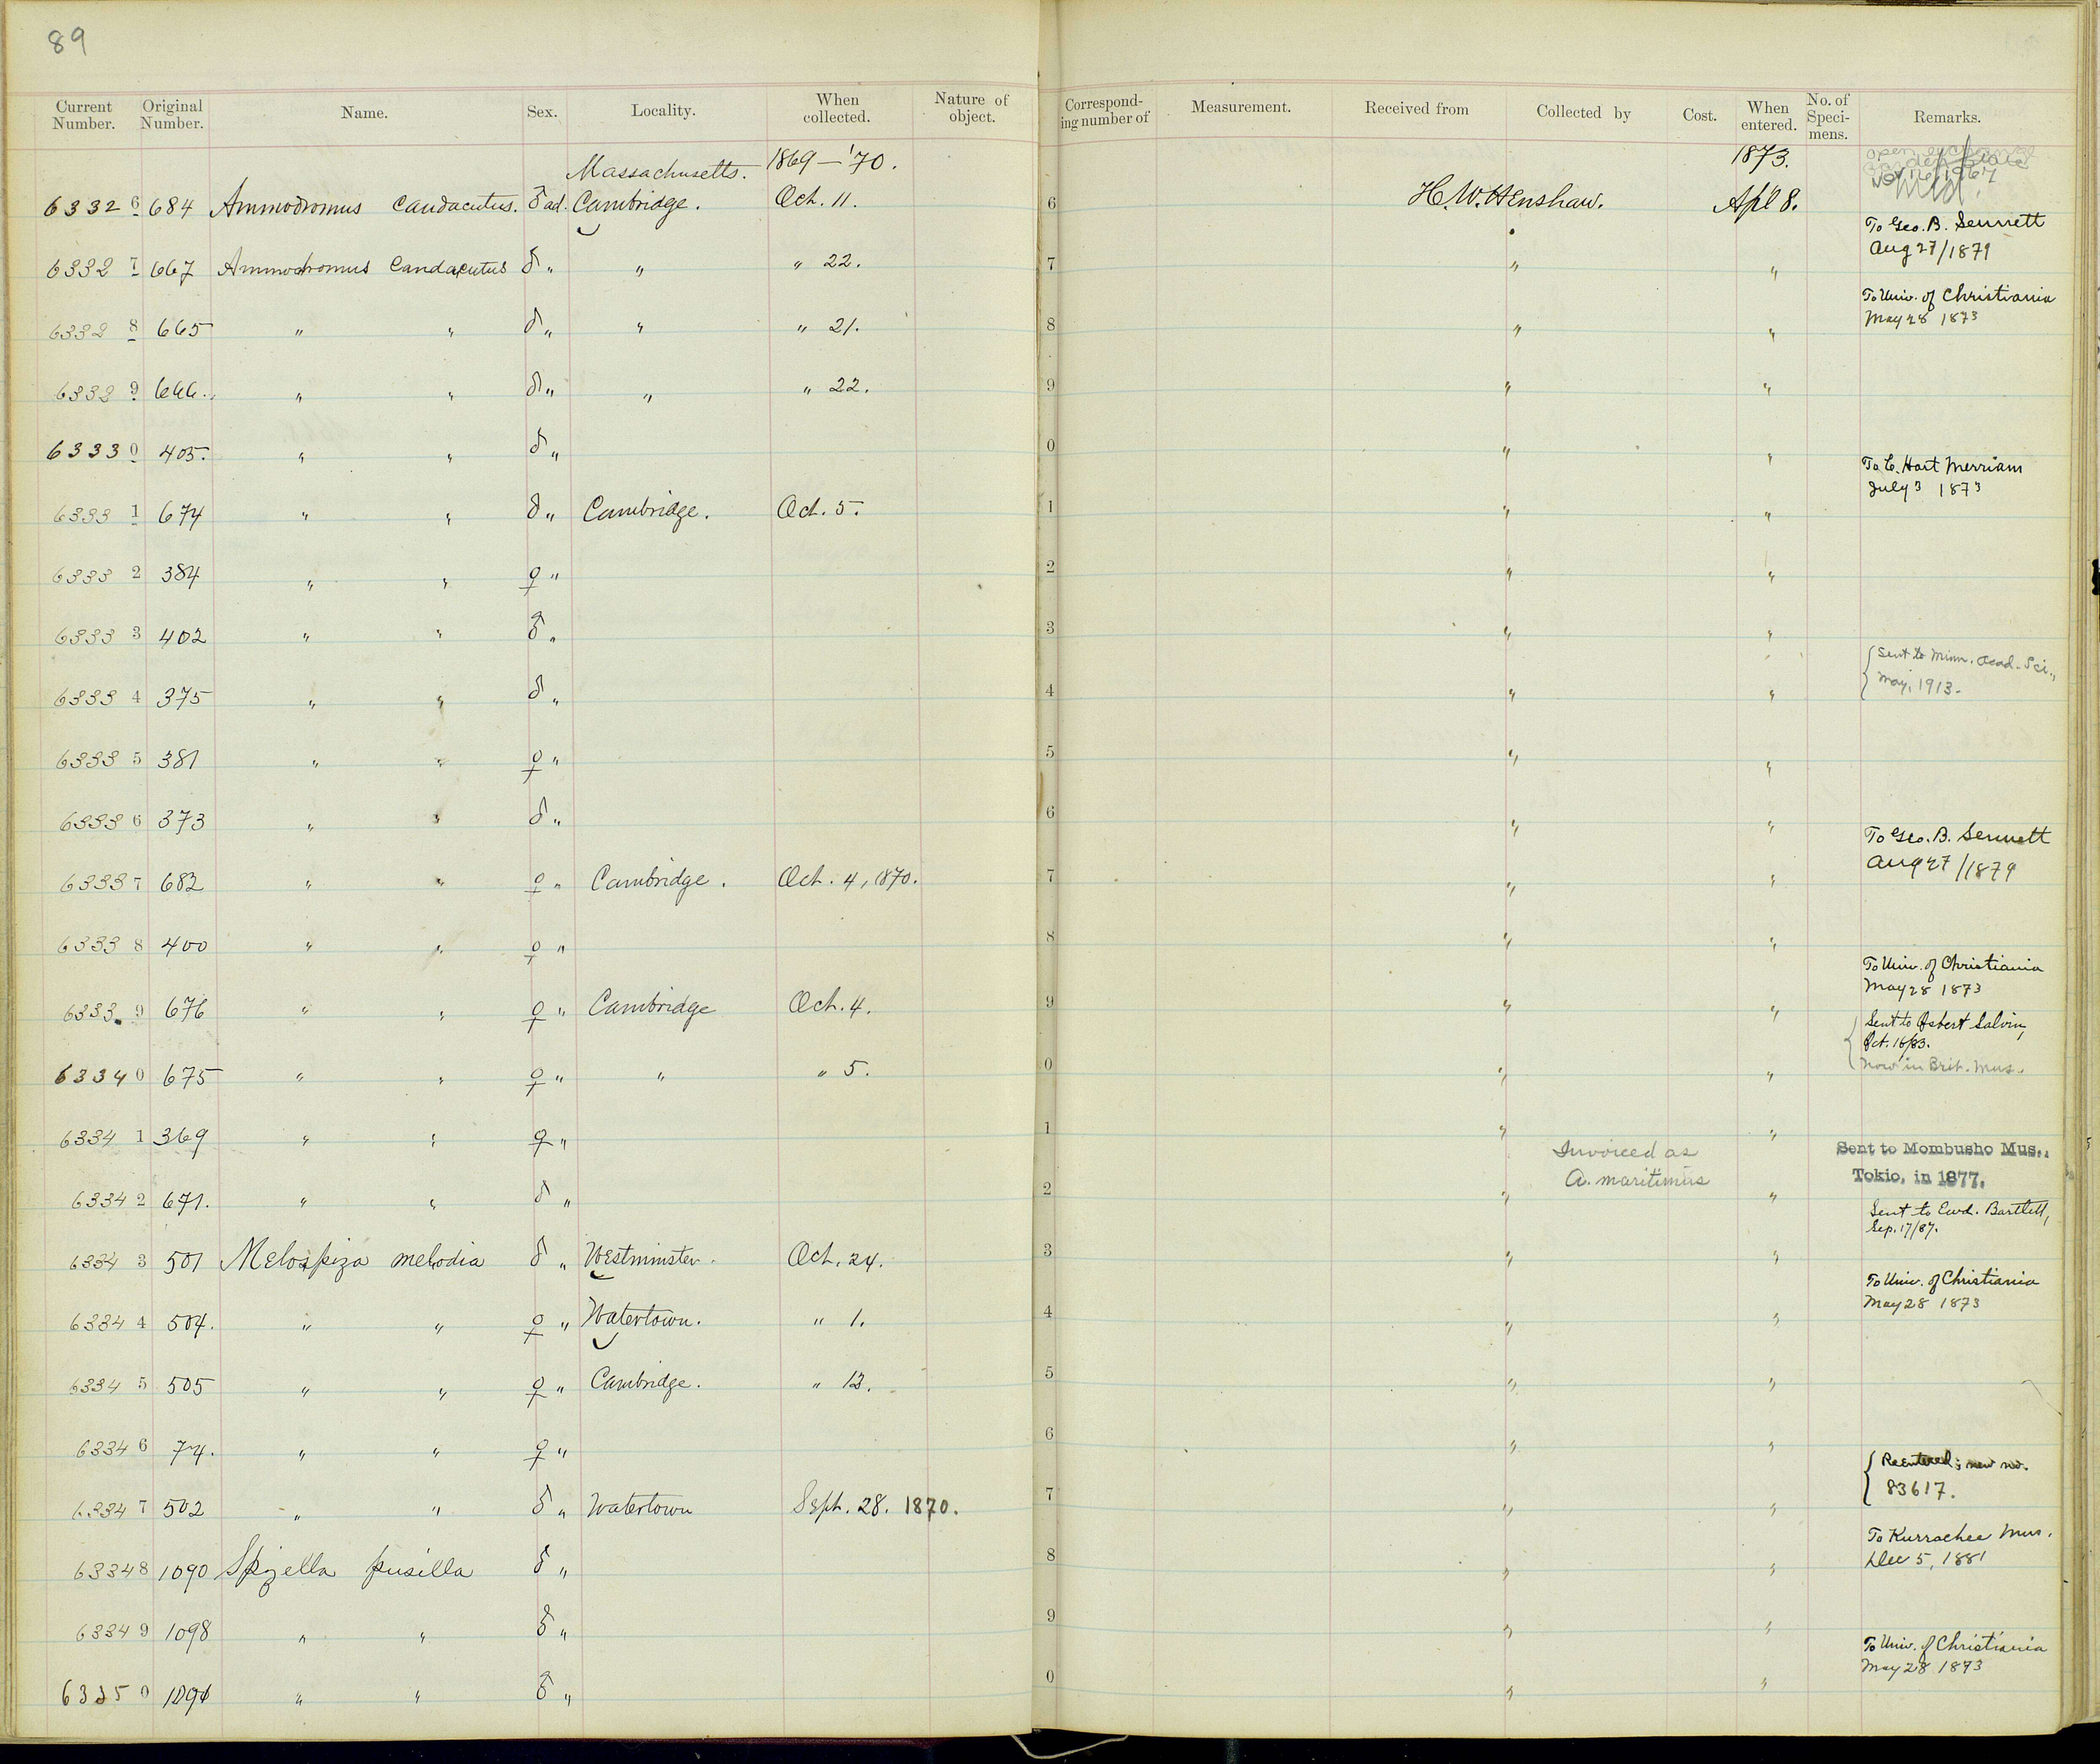 89
Current Number. Original Number. Name. Sex. Locality. When collected. Nature of object. Corresponding number of Measurement. Received from Collected by Cost. When entered. No. of Specimens. Remarks.
Massachusetts. 1869–'70. 1873.
63326 684 Ammodromus caudacutus. ♂ ad. Cambridge. Oct. 11. 6 H. W. Henshaw. Apl 8.
To Geo. B. Sennett
Aug 27/1879
63327 667 Ammodromus Caudacutus ♂ " " " 22. 7 " "
To Univ. of Christiania
May 28 1873
63328 665 " " ♂ " " " 21. 8 " "
63329 666. " " ♂ " " " 22. 9 " "
63330 405. " " ♂ " 0 " "
To C. Hart Merriam
July 3 1873
63331 674 " " ♂ " Cambridge. Oct. 5. 1 " "
63332 384 " " ♀ " 2 " "
63333 402 " " ♂ " 3 " "
Sent to Minn. Acad. Sci.,
May, 1913.
63334 375 " " ♂ " 4 " "
63335 381 " " ♀ " 5 " "
63336 373 " " ♂ " 6 " "
To Geo. B. Sennett
Aug 27/1879
63337 682 " " ♀ " Cambridge. Oct. 4, 1870. 7 " "
63338 400 " " ♀ " 8 " "
To Univ. of Christiania
May 28 1873
63339 676 " " ♀ " Cambridge Oct. 4. 9 " "
Sent to Osbert Salvin,
Oct. 16/83.
Now in Brit. Mus.
63340 675 " " ♀ " " " 5. 0 " "
63341 369 " " ♀ " 1 " "
Invoiced as
A. maritimus
Sent to Mombusho Mus.,
Tokio, in 1877.
63342 671. " " ♂ " 2 " "
Sent to Edwd. Bartlett,
Sep. 17/87.
63343 501 Melospiza melodia ♂ " Westminster. Oct. 24. 3 " "
To Univ. of Christiania
May 28 1873
63344 504. " " ♀ " Watertown. " 1. 4 " "
63345 505 " " ♀ " Cambridge. " 13. 5 " "
63346 74. " " ♀ " 6 " "
Reentered; new no.
83617.
63347 502 " " ♂ " Watertown Sept. 28. 1870. 7 " "
To Kurrachee Mus.
Dec 5, 1881
63348 1090 Spizella pusilla ♂ " 8 " "
63349 1098 " " ♂ " 9 " "
To Univ. of Christiania
May 28 1873
63350 " " ♂ " 0 " "